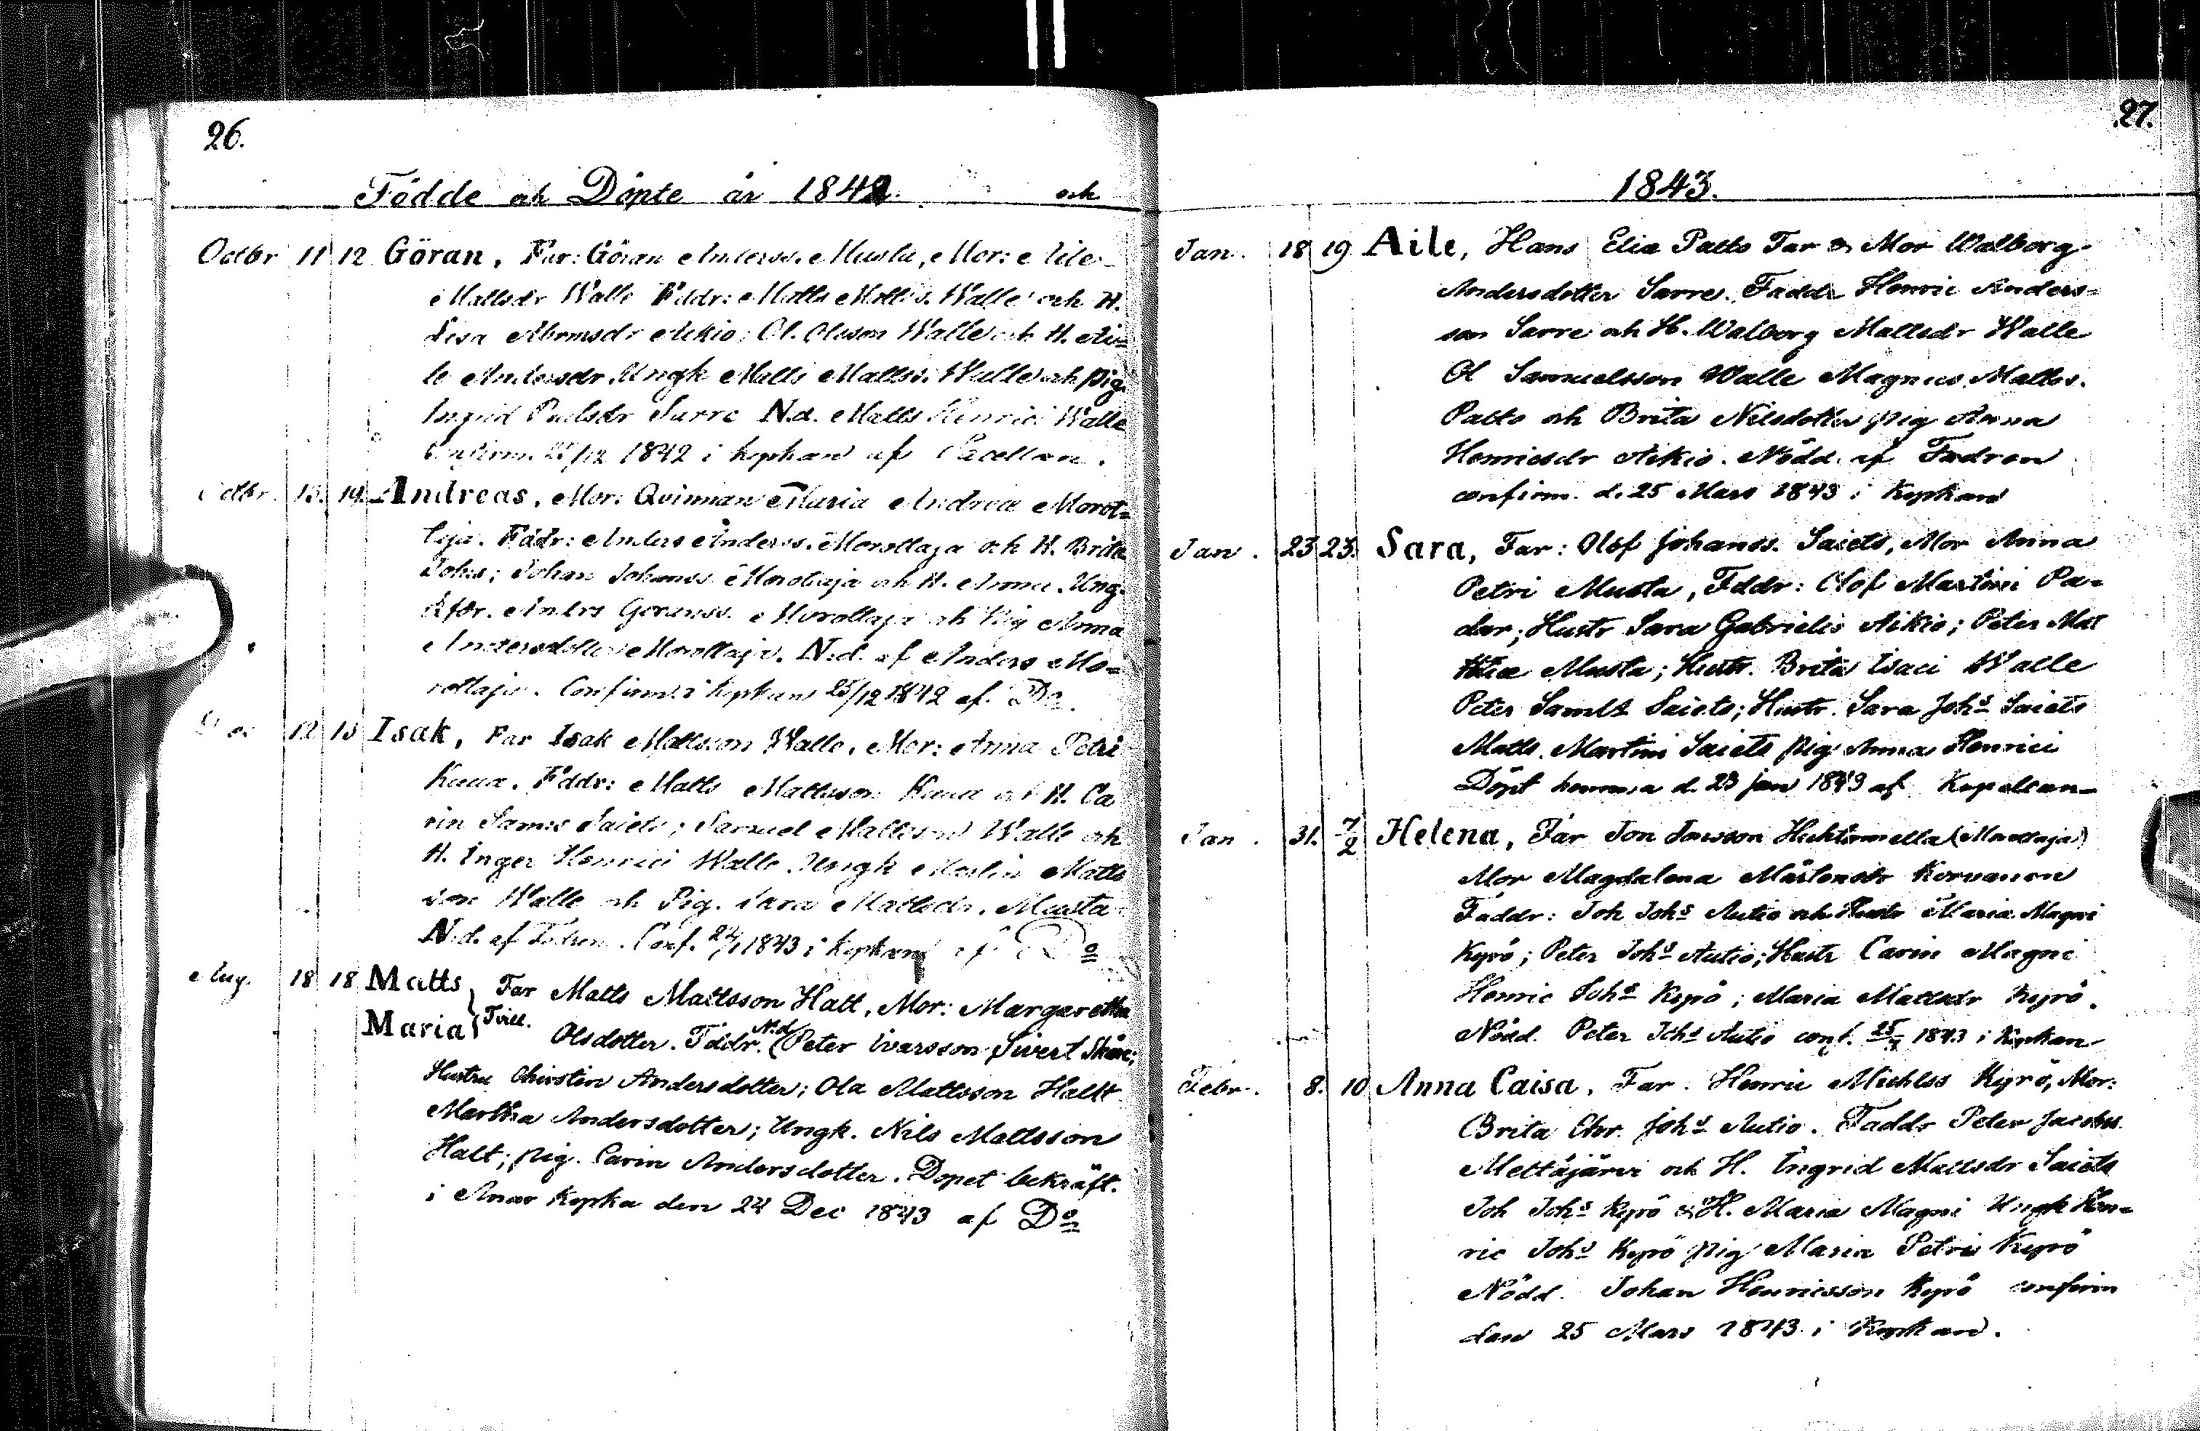 26.
Födde och Döpte år 1842. och
Octbr 11 12 Göran, Far: Göran Anderss. Musta, Mor: Aile
Mattsdr Walle Fddr: Matts Mattss. Walle och H.
Lisa Abrmsdr Aikio; Ol. Olsson Walle och H. Ai=
le Andersdr. Ungk Matts Mattss. Walle och pig.
Ingrid Paulsdr Sarre N.d. Matts Henrici Walle
Confirm. 25/12 1842 i kypkan af Pacellan.
Octbr. 19 Andreas, Mor: Qvinnan Maria Andreæ Morot=
taja. Fddr: Anders Anderss. Morottaja och H. Brita
Johs; Johan Johanss. Morottaja och H. Anna. Ung.
Anders Göranss. Morottaja och Pig Anna
Andersdotter Morottaja. N.d. af Anders Mo=
rottaja. Confirm. i kypkan 25/12 1842 af. Do.
12 13 Isak, Far Isak Mattsson Walle, Mor: Anna Petri
Kuua. Fddr: Matts Mattsson Kuua och H. Ca
rin Saml Saiets; Samuel Mattsson Walle och
H. Inger Henrici Walle Ungk Martin Matts
son Walle och Pig. Sara Mattsdr. Musta
N.d. af Fadren. Conf. 24/1 1843 i kypkan af Do
Aug. 18 18 Matts Far Matts Mattsson Halt, Mor: Margaretha
Maria Tvill. Olsdotter. Fddr. N.d. (Peter Ivarsson Sivert Skåre;
Hustru Christin Andersdotter; Ola Mattsson Hallt
Martha Andersdotter; Ungk. Nils Mattsson
Halt; pig. Carin Andersdotter. Dopet bekräft.
i Anar kypka den 24 Dec 1843 af Do
27.
1843.
Jan. 18 19 Aile, Hans Eliæ Patto Far & Mor Walborg
Andersdotter Sarre. Faddr Henric Anders=
son Sarre och H. Walborg Mattsdr Walle
Ol Samuelsson Walle Magnus Mattss.
Patto och Brita Nilsdotter pig Anna
Henricsdr Aikio. Nödd. af Fadren
confirm. d. 25 Mars 1843 i Kypkan
Jan. 23 23. Sara, Far: Olof Johanss. Saiets, Mor Anna
Petri Musta, Fddr: Olof Martini Pa=
dar; Hustr Sara Gabrielis Aikio; Peter Mat
thiæ Musta; Hustr. Brita Isaci Walle
Peter Samls Saiets; Hustr. Sara Johs Saiets
Matts. Martini Saiets pig Anna Henrici
Döpt hemma d. 23 jan 1843 af Kapellan
Jan. 31. 7/2 Helena, Far Jon Jonsson Huhtamella (Morottaja)
Mor Magdalena Mårtensdr Korvanen
Faddr: Joh Johs Autio och Hustr Maria Magni
Kyrö; Peter Johs Autio; Hustr Carin Magni
Henric Johs Kyrö; Maria Mattsdr Kyrö.
Nödd. Peter Johs Autio conf. 1843 i Kypkan
Febr. 8. 10 Anna Caisa. Far. Henric Michlss Kyrö, Mor:
Brita Chr. Johs Autio. Faddr Peter Jacobss.
Mettäjärvi och H. Ingrid Mattsdr Saiets
Joh Johs Kyrö & H. Maria Magni Ungk Hen=
ric Johs Kyrö pig Maria Petri Kyrö
Nödd. Johan Henricsson Kyrö confirm
dan 25 Mars 1843 i Kypkan.